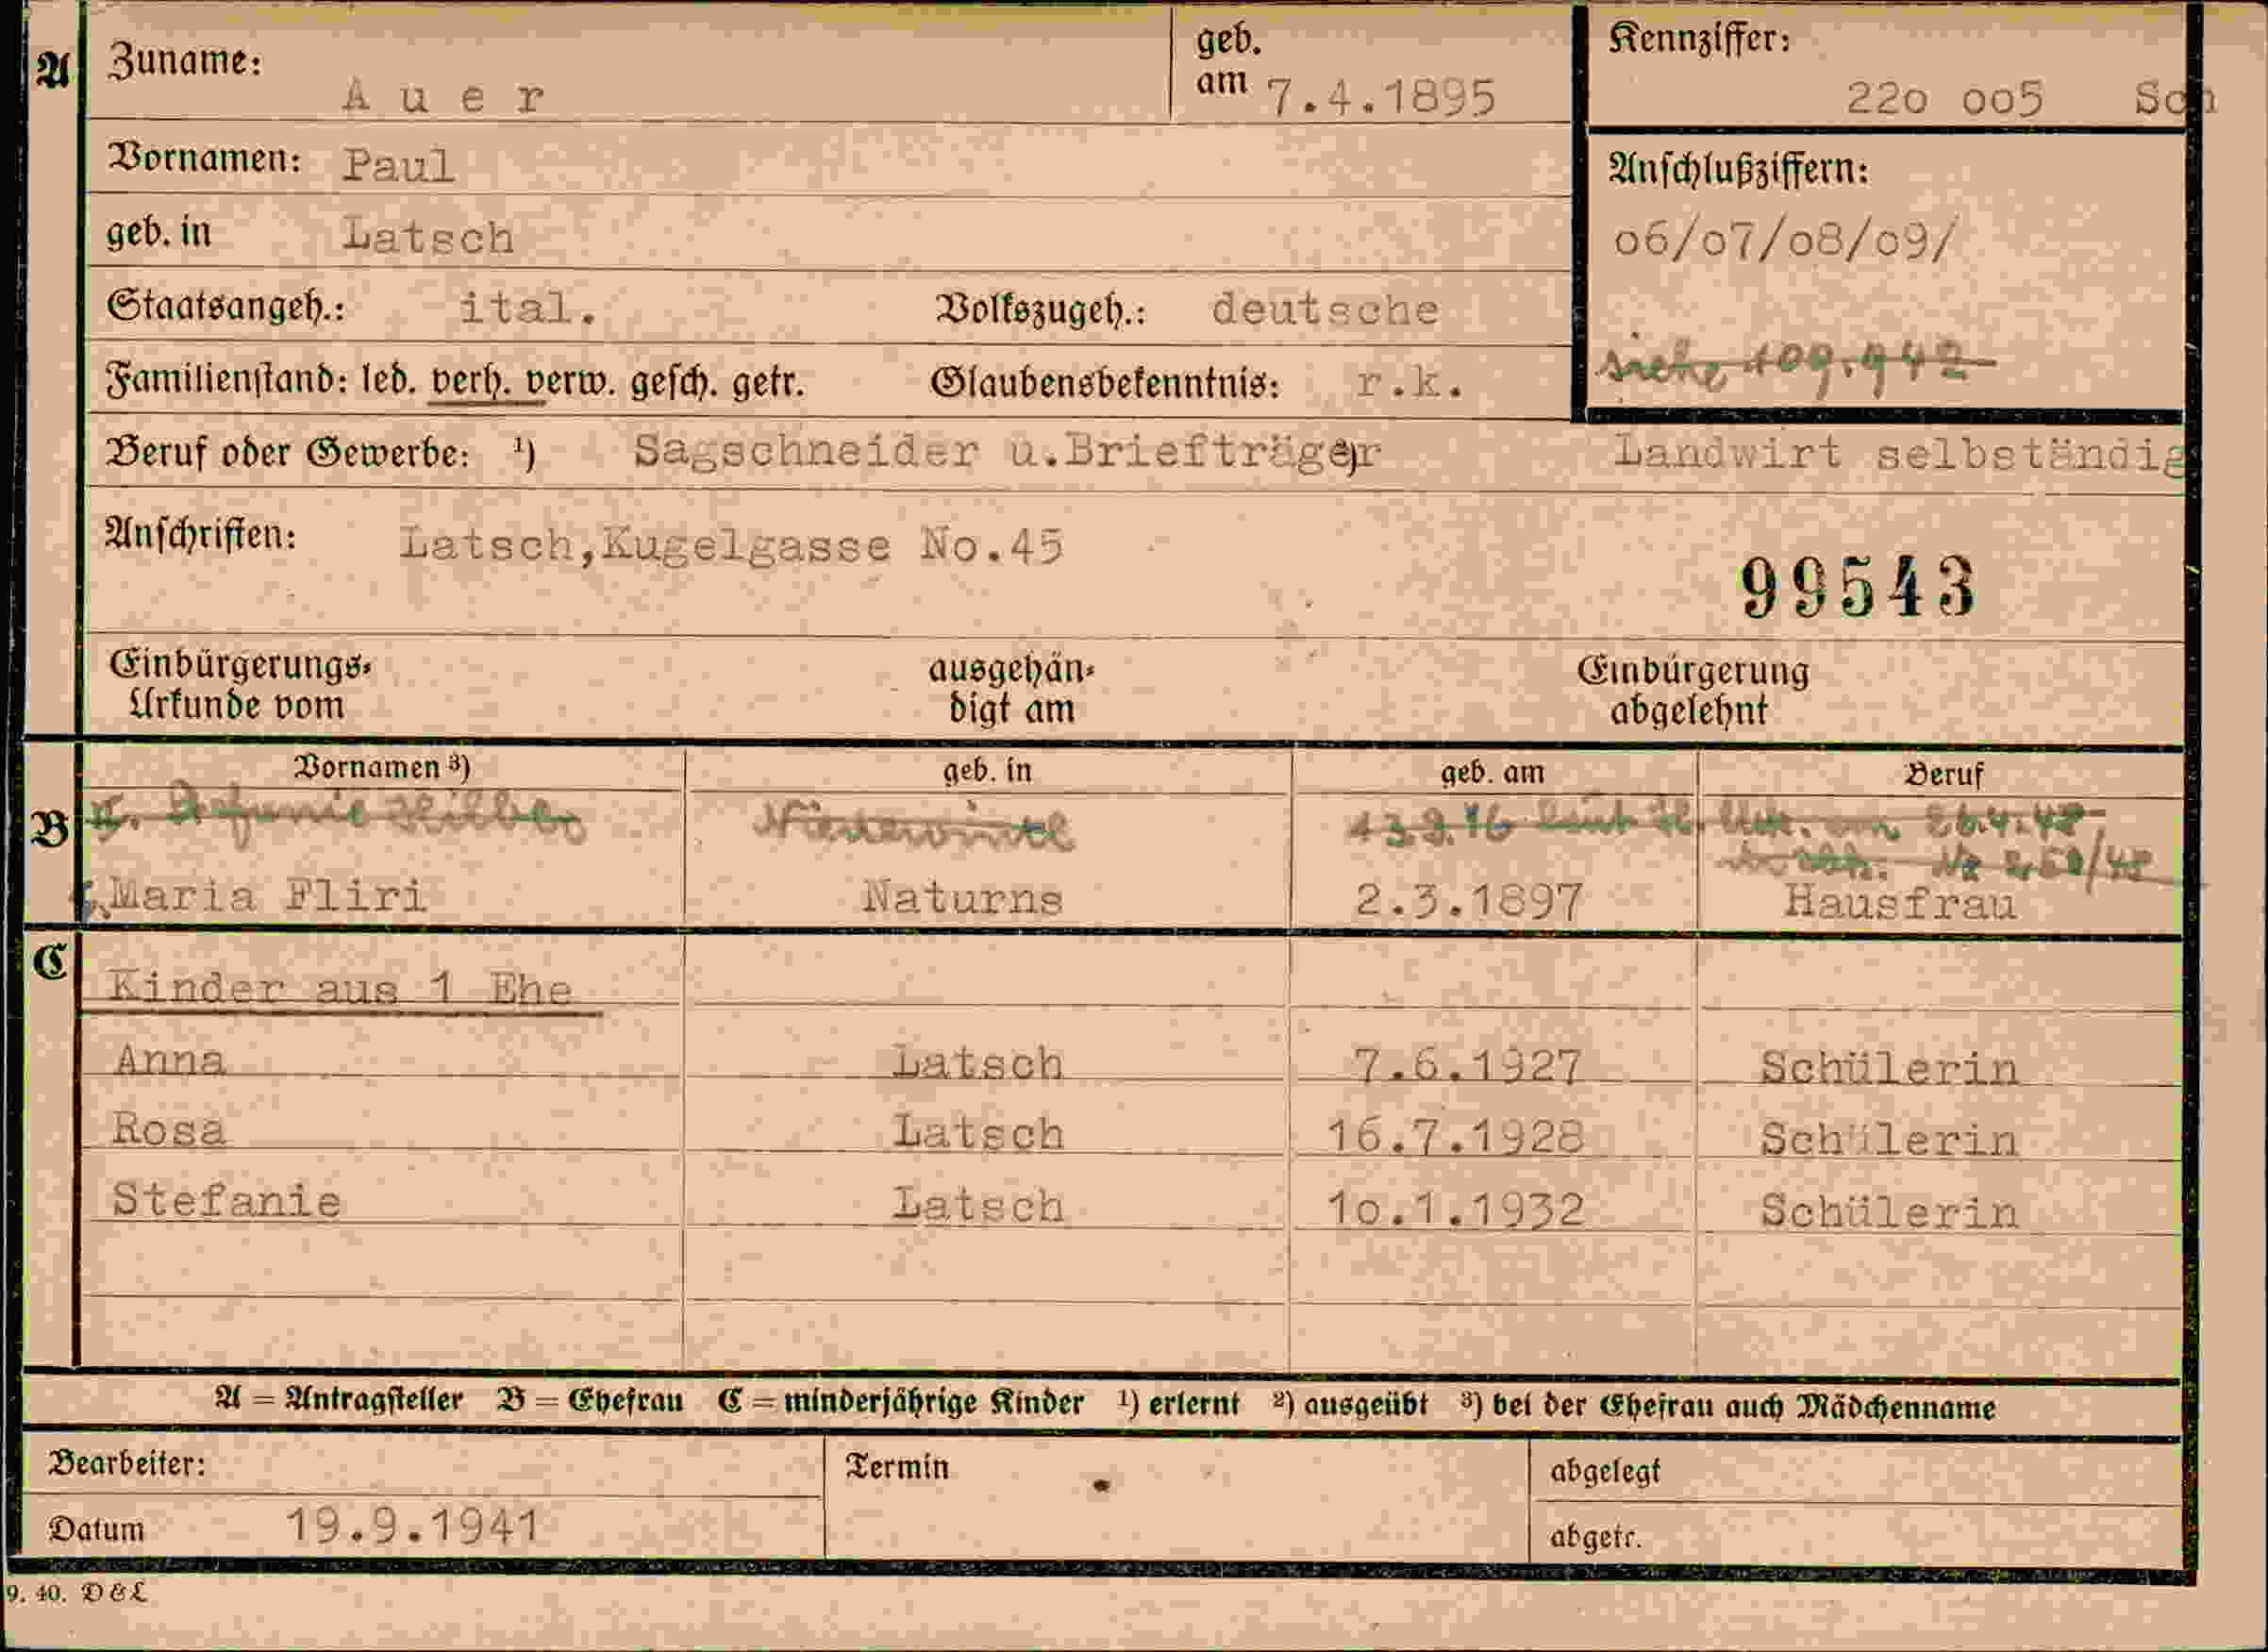 A Zuname: A u e r geb. am 7.4.1895 Kennziffer: 22o oo5 Sch
Vornamen: Paul Anschlußziffern:
geb. in Latsch o6/o7/o8/o9/
Staatsangeh.: ital. Volkszugeh.: deutsche
Familienstand: led. verh. verw. gesch. getr. Glaubensbekenntnis: r.k. siehe 109.942
Beruf oder Gewerbe: ¹) Sagschneider u.Briefträger Landwirt selbständig
Anschriften: Latsch,Kugelgasse No.45
99543
Einbürgerungs- ausgehän- Einbürgerung
Urkunde vom digt am abgelehnt
Vornamen ³) geb. in geb. am Beruf
B
Maria Fliri Naturns 2.3.1897 Hausfrau
C
Kinder aus 1 Ehe
Anna Latsch 7.6.1927 Schülerin
Rosa Latsch 16.7.1928 Schülerin
Stefanie Latsch 1o.1.1932 Schülerin
A = Antragsteller B = Ehefrau C = minderjährige Kinder ¹) erlernt ²) ausgeübt ³) bei der Ehefrau auch Mädchenname
Bearbeiter: Termin abgelegt
Datum 19.9.1941 abgetr.
9. 40. D & L